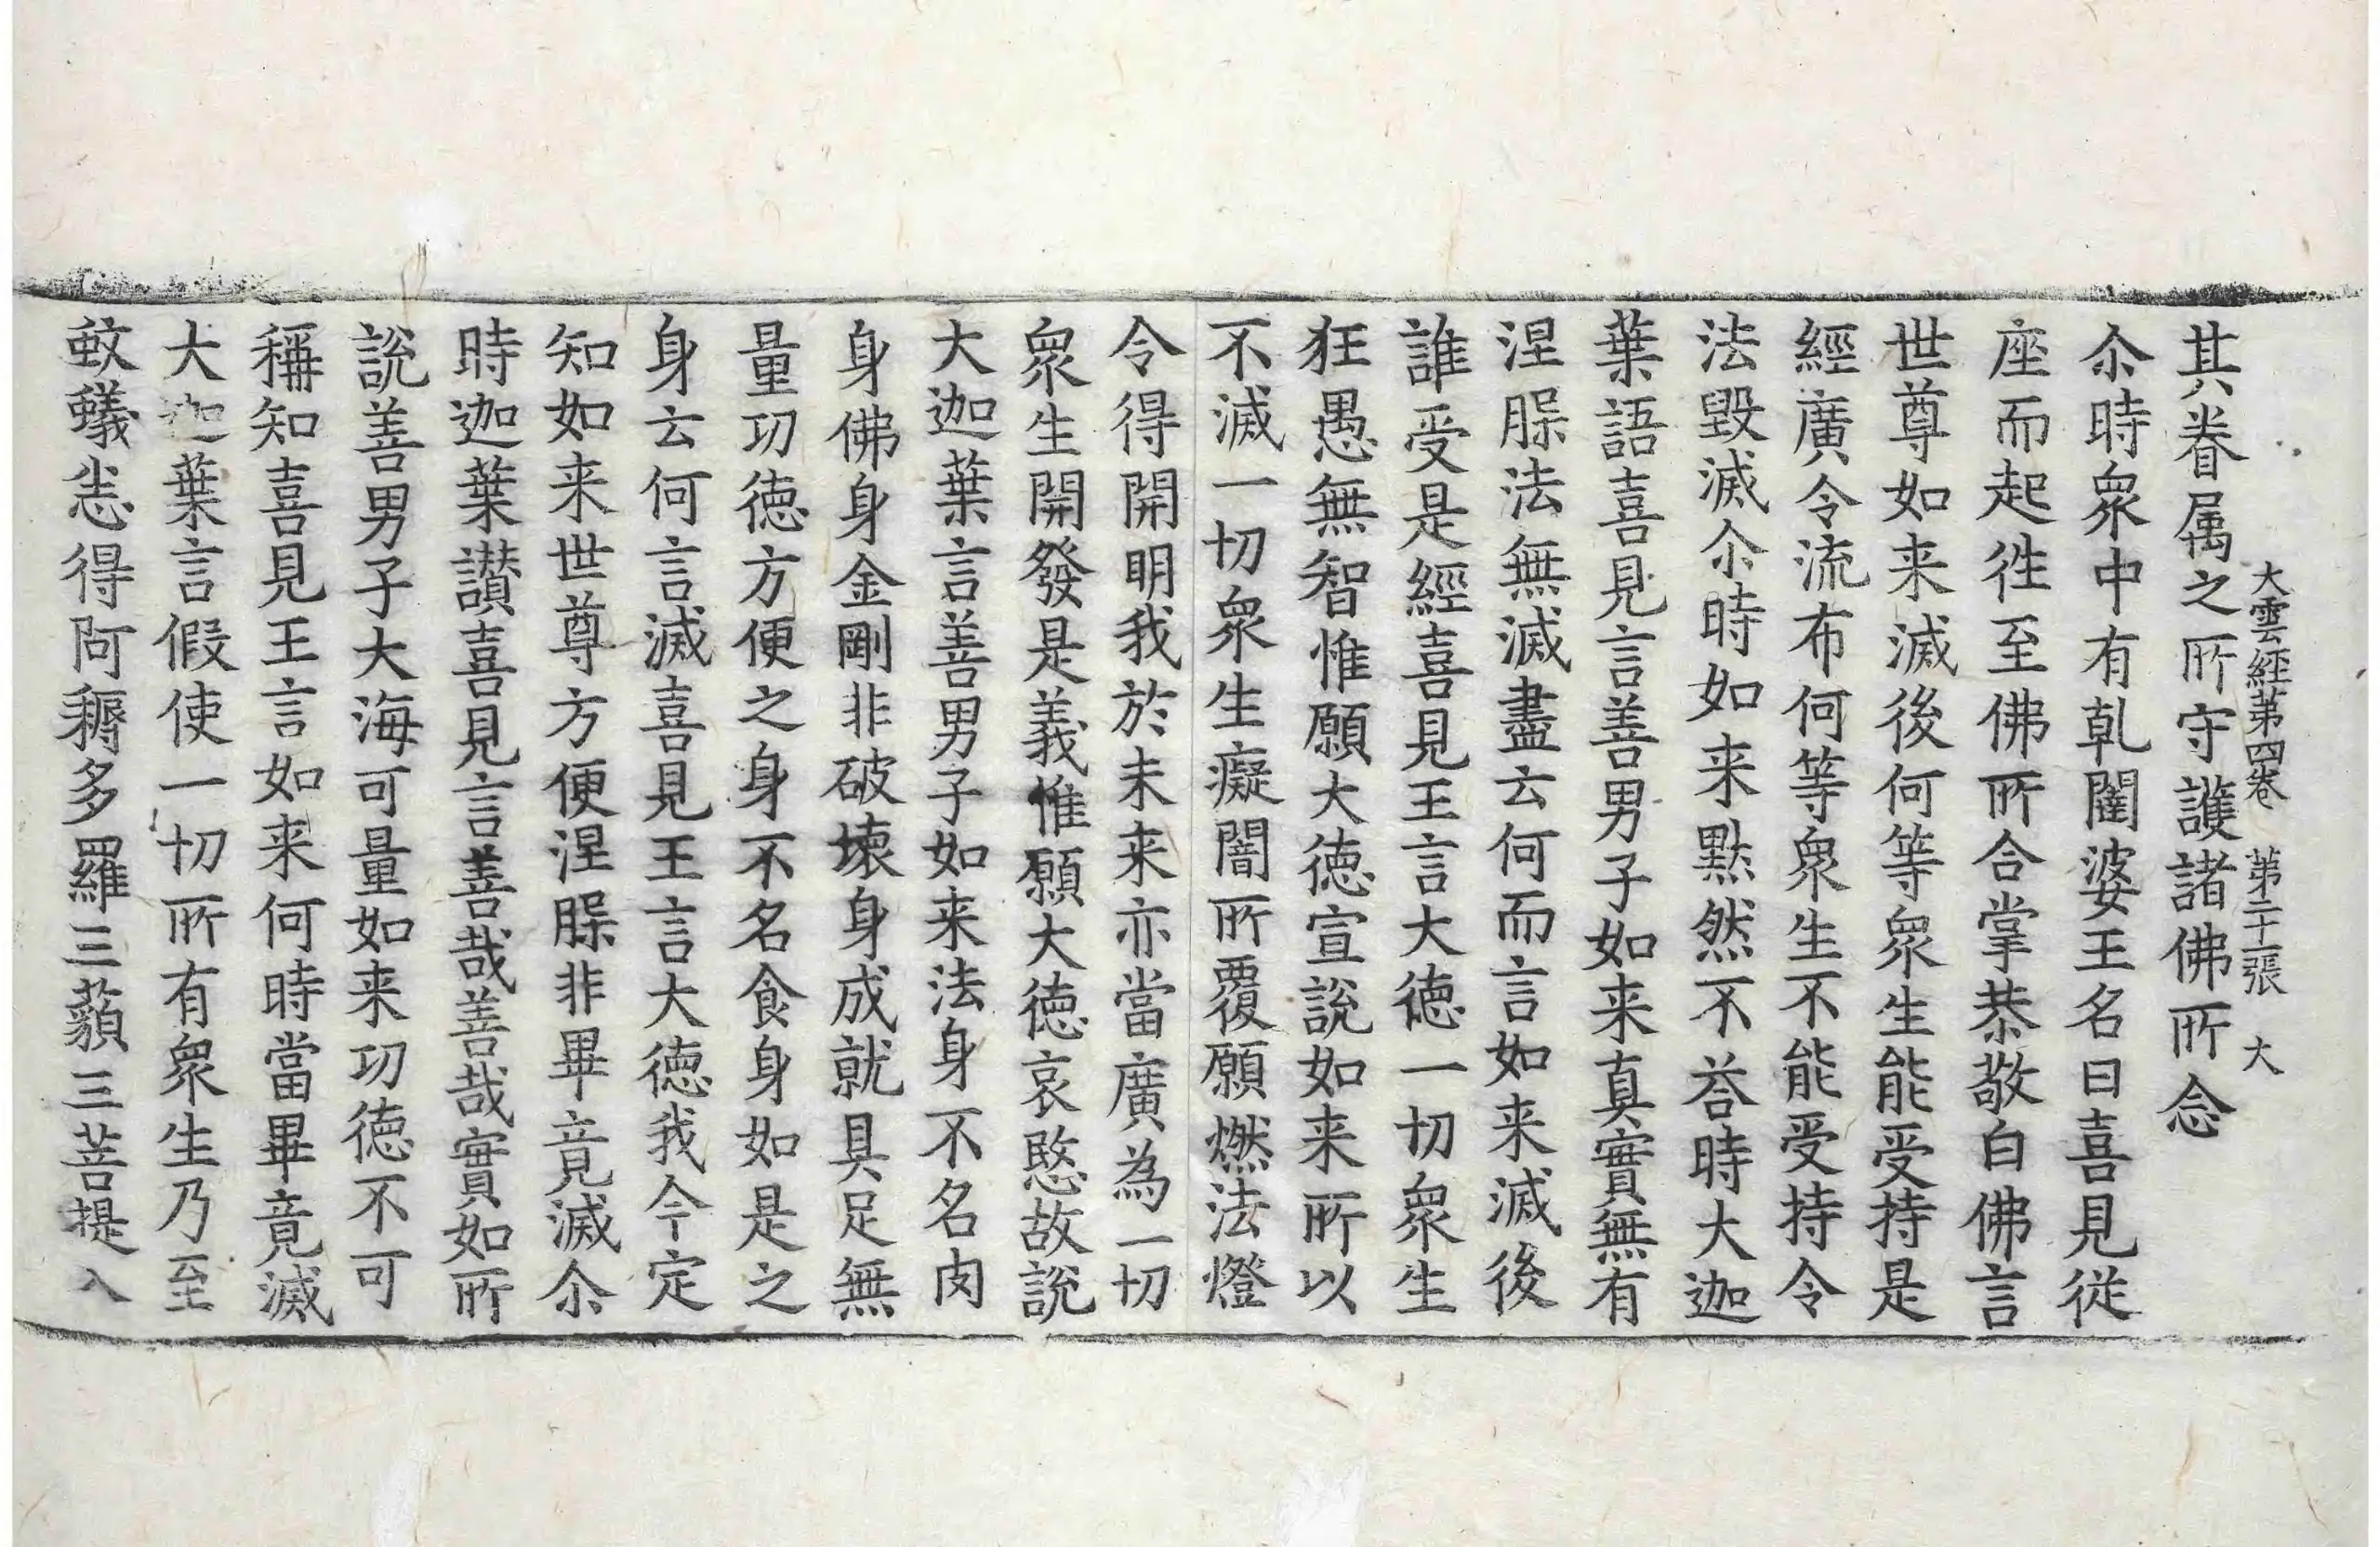 大雲經第四卷　第二十一張　大
其眷属之所守護諸佛所念
尒時衆中有乹闥婆王名曰喜見従
座而起徃至佛所合掌恭敬白佛言
世尊如来滅後何等衆生能受持是
經廣令流布何等衆生不能受持令
法毀滅尒時如来黙然不荅時大迦
葉語喜見言善男子如来真實無有
涅槃法無滅盡云何而言如来滅後
誰受是經喜見王言大徳一切衆生
狂愚無智惟願大徳宣說如来所以
不滅一切衆生癡闇所覆願燃法燈
令得開明我於未来亦當廣為一切
衆生開發是義惟願大徳哀愍故說
大迦葉言善男子如来法身不名肉
身佛身金剛非破壊身成就具足無
量功徳方便之身不名食身如是之
身云何言滅喜見王言大徳我今定
知如来世尊方便涅槃非畢竟滅尒
時迦葉讃喜見言善哉善哉實如所
說善男子大海可量如来功徳不可
稱知喜見王言如来何時當畢竟滅
大迦葉言假使一切所有衆生乃至
蚊蟻悉得阿耨多羅三藐三菩提入